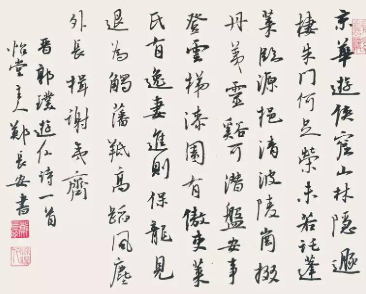 京華遊俠窟山林隱遯
棲朱門何足榮未若託蓬
萊臨源挹清波陵崗掇
丹荑靈谿可潛盤安事
登雲梯漆園有傲吏萊
氏有逸妻進則保龍見
退為觸藩羝高蹈風塵
外長揖謝夷齊
晋郭璞遊仙诗一首
怡堂主人鄭長安書